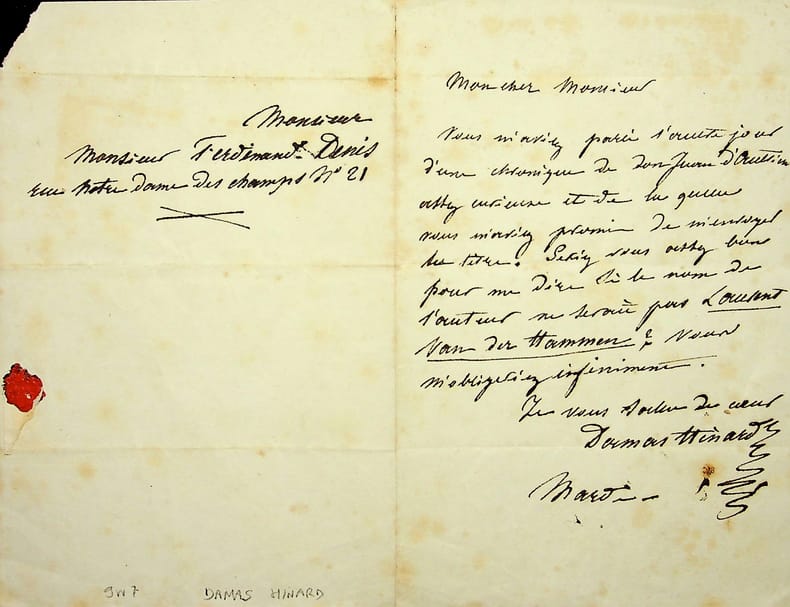 Monsieur
Monsieur Ferdinand Denis
rue Notre dame des champs N° 21
Mon cher Monsieur
Vous m'aviez parlé l'autre jour
d'une chronique de don Juan d'Autriche
assez curieuse et de la quelle
vous m'aviez promis de m'envoyer
le titre. Seriez vous assez bon
pour me dire si le nom de
l'auteur ne serait pas Laurent
Van der Hammen ? Vous
m'obligeriez infiniment.
Je vous salue de cœur
Damas Hinard
Mardi
9W7 DAMAS HINARD